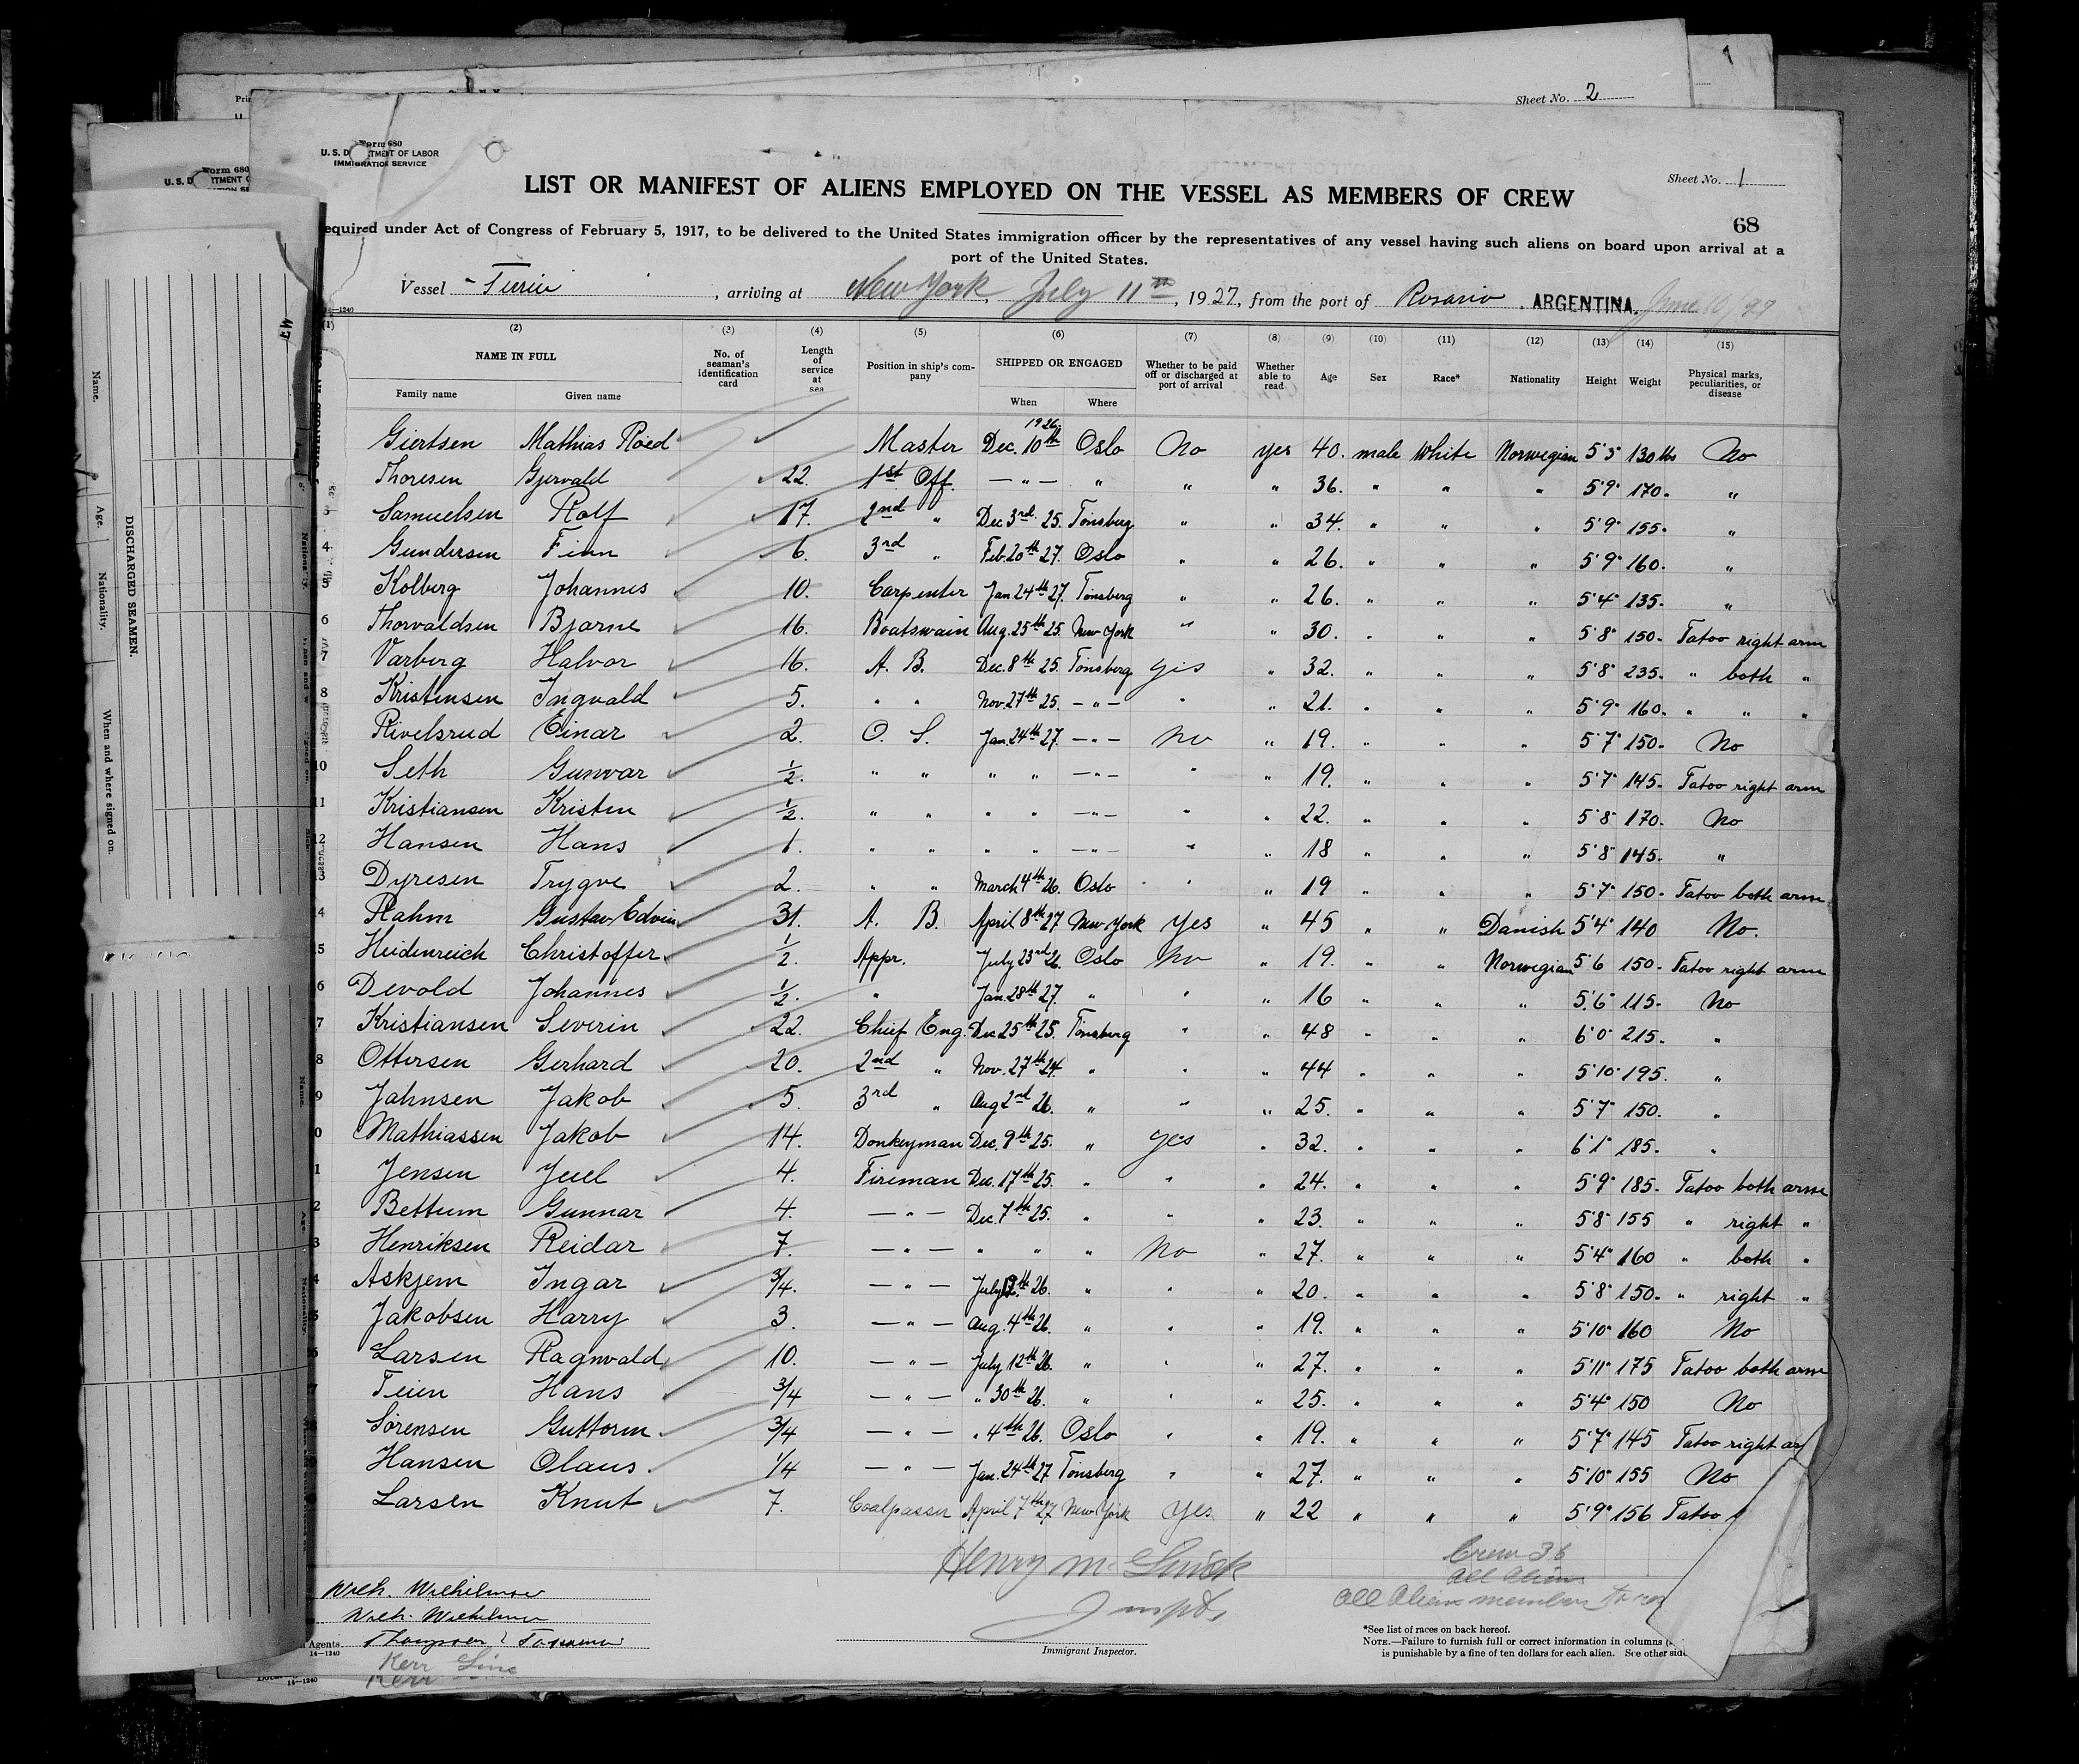 Sheet No. 2
Form 680
U. S. D TMENT OF LABOR
IMMIGRATION SERVICE
Sheet No. 1
LIST OR MANIFEST OF ALIENS EMPLOYED ON THE VESSEL AS MEMBERS OF CREW
68
equired under Act of Congress of February 5, 1917, to be delivered to the United States immigration officer by the representatives of any vessel having such aliens on board upon arrival at a
port of the United States.
Vessel , arriving at New York, July 11th, 1927, from the port of Rosario . ARGENTINA. June 10/27
(1) (2) (3) (4) (5) (6) (7) (8) (9) (10) (11) (12) (13) (14) (15)
NAME IN FULL No. of seaman's identification card Length of service at sea Position in ship's company SHIPPED OR ENGAGED Whether to be paid off or discharged at port of arrival Whether able to read Age Sex Race* Nationality Height Weight Physical marks, peculiarities, or disease
Family name Given name When Where
Giertsen Mathias Roed Master Dec. 10th 1926 Oslo No yes 40. male White Norwegian 5'5" 130 lbs No
Thoresen Gjervald 22. 1st Off. — " — " " " 36. " " " 5'9" 170. "
3 Samuelsen Rolf 17. 2nd " Dec 3rd 25. Tönsberg " " 34. " " " 5'9" 155. "
4 Gundersen Finn 6. 3rd " Feb. 20th 27. Oslo " " 26. " " " 5'9" 160. "
5 Kolberg Johannes 10. Carpenter Jan 24th 27. Tönsberg " " 26. " " " 5'4" 135. "
6 Thorvaldsen Bjarne 16. Boatswain Aug. 25th 25. New York " " 30. " " " 5'8" 150. Tatoo right arm
7 Varberg Halvor 16. A. B. Dec. 8th 25. Tönsberg yes " 32. " " " 5'8" 235. " both "
8 Kristensen Ingvald 5. " " Nov. 27th 25. — " — " " 21. " " " 5'9" 160. " " "
Rivelsrud Einar 2. O. S. Jan. 24th 27. — " — No " 19. " " " 5'7" 150. No
10 Seth Gunvar 1/2. " " " " — " — " " 19. " " " 5'7" 145. Tatoo right arm
11 Kristiansen Kristen 1/2. " " " " — " — " " 22. " " " 5'8" 170. No
12 Hansen Hans 1. " " " " — " — " " 18 " " " 5'8" 145. "
3 Dyresen Trygve 2. " " March 4th 26. Oslo " " 19 " " " 5'7" 150. Tatoo both arm
4 Rahm Gustav Edvin 31. A. B. April 8th 27 New York Yes " 45 " " Danish 5'4" 140 No.
5 Heidenreich Christoffer 1/2. Appr. July 23rd 26. Oslo No " 19. " " Norwegian 5'6 150. Tatoo right arm
6 Devold Johannes 1/2. " Jan. 28th 27. " " " 16 " " " 5'6" 115. No
7 Kristiansen Severin 22. Chief Eng. Dec 25th 25. Tönsberg " " 48 " " " 6'0" 215. "
8 Ottersen Gerhard 20. 2nd " Nov. 27th 24. " " " 44 " " " 5'10" 195. "
9 Jahnsen Jakob 5. 3rd " Aug 2nd 26. " " " 25. " " " 5'7" 150. "
0 Mathiassen Jakob 14. Donkeyman Dec. 9th 25. " yes " 32. " " " 6'1" 185. "
1 Jensen Juel 4. Fireman Dec. 17th 25. " " " 24. " " " 5'9" 185. Tatoo both arm
2 Bettum Gunnar 4. — " — Dec. 7th 25. " " " 23. " " " 5'8" 155 " right "
3 Henriksen Reidar 7. — " — " " " No " 27. " " " 5'4" 160 " both "
4 Askjem Ingar 3/4. — " — July 12th 26. " " " 20. " " " 5'8" 150. " right "
5 Jakobsen Harry 3. — " — Aug. 4th 26. " " " 19. " " " 5'10" 160 No
Larsen Ragnvald 10. — " — July 12th 26. " " " 27. " " " 5'11" 175 Tatoo both arm
7 Teien Hans 3/4 — " — " 30th 26. " " " 25. " " " 5'4" 150 No
Sörensen Guttorm 3/4 — " — " 4th 26. Oslo " " 19. " " " 5'7" 145 Tatoo right ar
Hansen Olaus 1/4 — " — Jan. 24th 27 Tönsberg " " 27. " " " 5'10" 155 No
Larsen Knut 7. Coalpasser April 7th 27 New York Yes " 22 " " " 5'9" 156 Tatoo
Crew 36
All Aliens
All Alien members
Wilh. Wilhelmsen
Wilh. Wilhelmsen
Agents.
14—1240
Kerr Line
Kerr
14—1240
Henry
Immigrant Inspector.
*See list of races on back hereof.
NOTE.—Failure to furnish full or correct information in columns
is punishable by a fine of ten dollars for each alien. See other side
Name.
Age.
Nationality.
When and where signed on.
DISCHARGED SEAMEN.